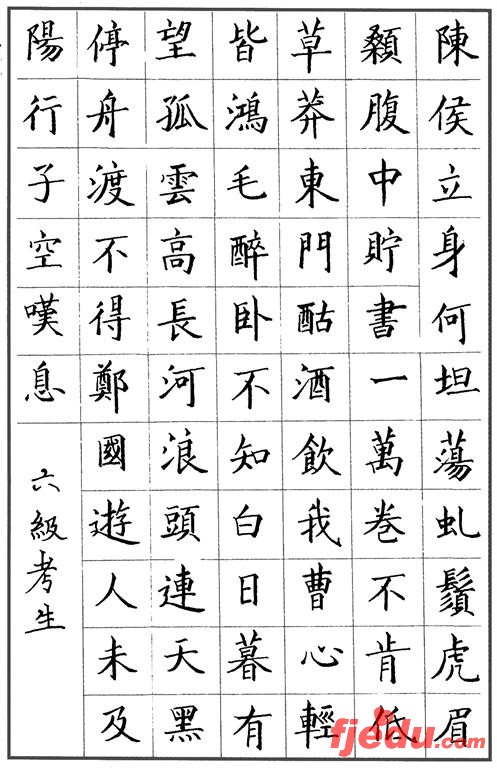 陳侯立身何坦蕩虬鬚虎眉
顙腹中貯書一萬卷不肯低
草莽東門酤酒飲我曹心輕
皆鴻毛醉卧不知白日暮有
望孤雲高長河浪頭連天黑
停舟渡不得鄭國遊人未及
陽行子空嘆息
六級考生
fjedu.com